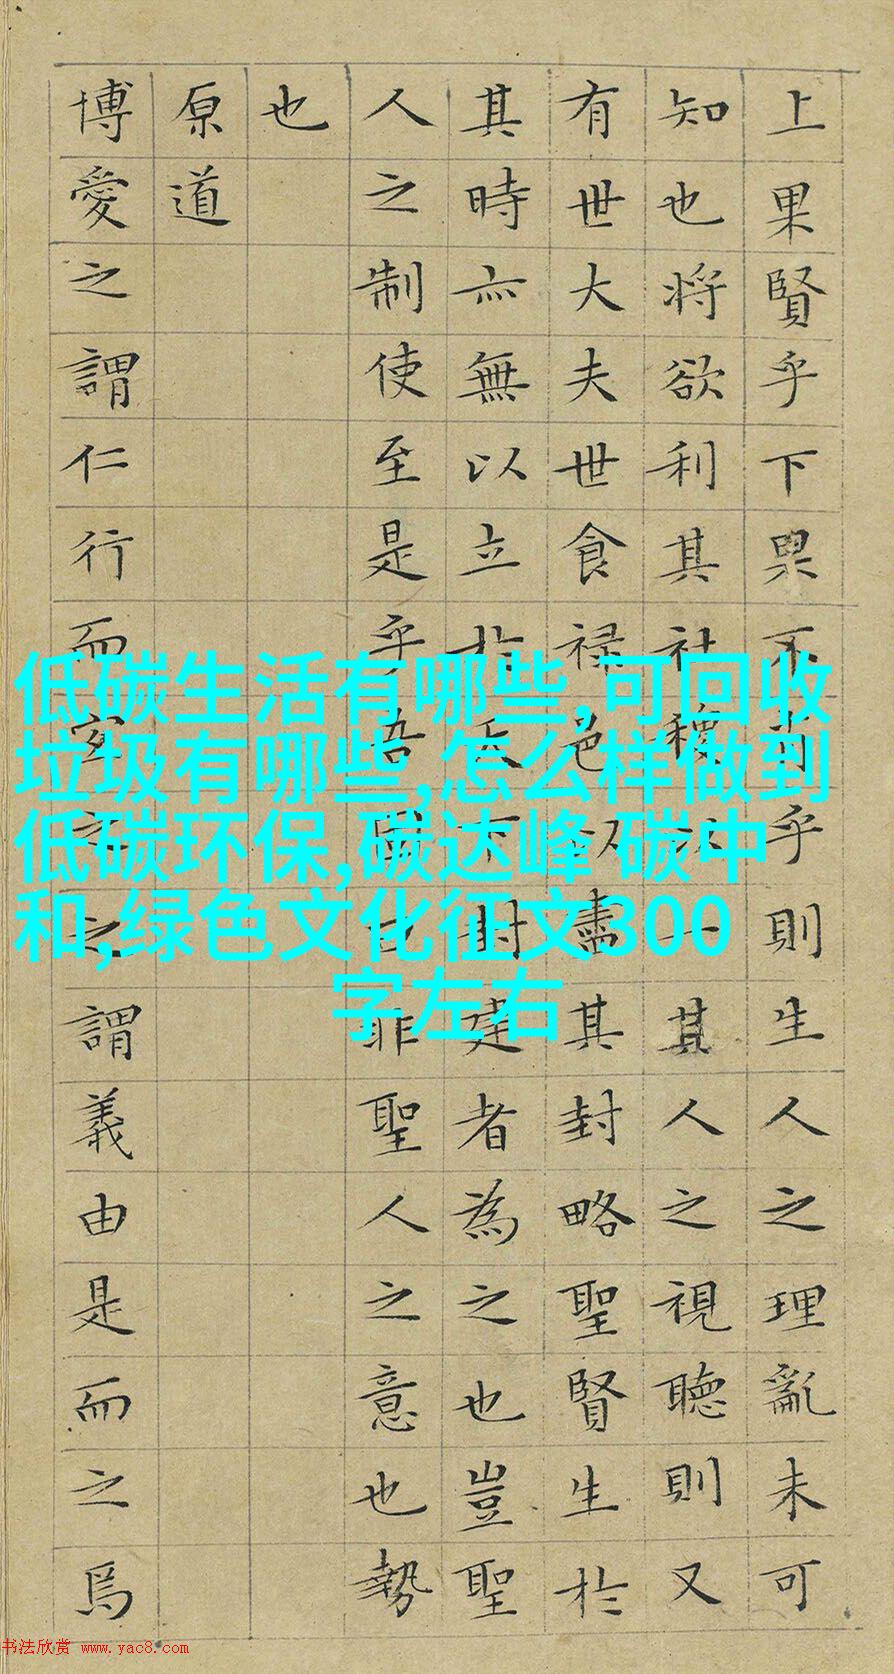 上果賢乎下果不肖乎則生人之理亂未可
知也将欲利其社稷以一其人之視聽則又
有世大夫世食禄邑以盡其封略聖賢生於
其時亦無以立於天下封建者為之也豈聖
人之制使至是乎吾固曰非聖人之意也勢
也
原道
博愛之謂仁行而宜之之謂義由是而之焉
低碳生活有哪些,可回收
垃圾有哪些,怎么样做到
低碳环保,碳达峰 碳中
和,绿色文化征文300
字左右
书法欣赏 www.yac8.com